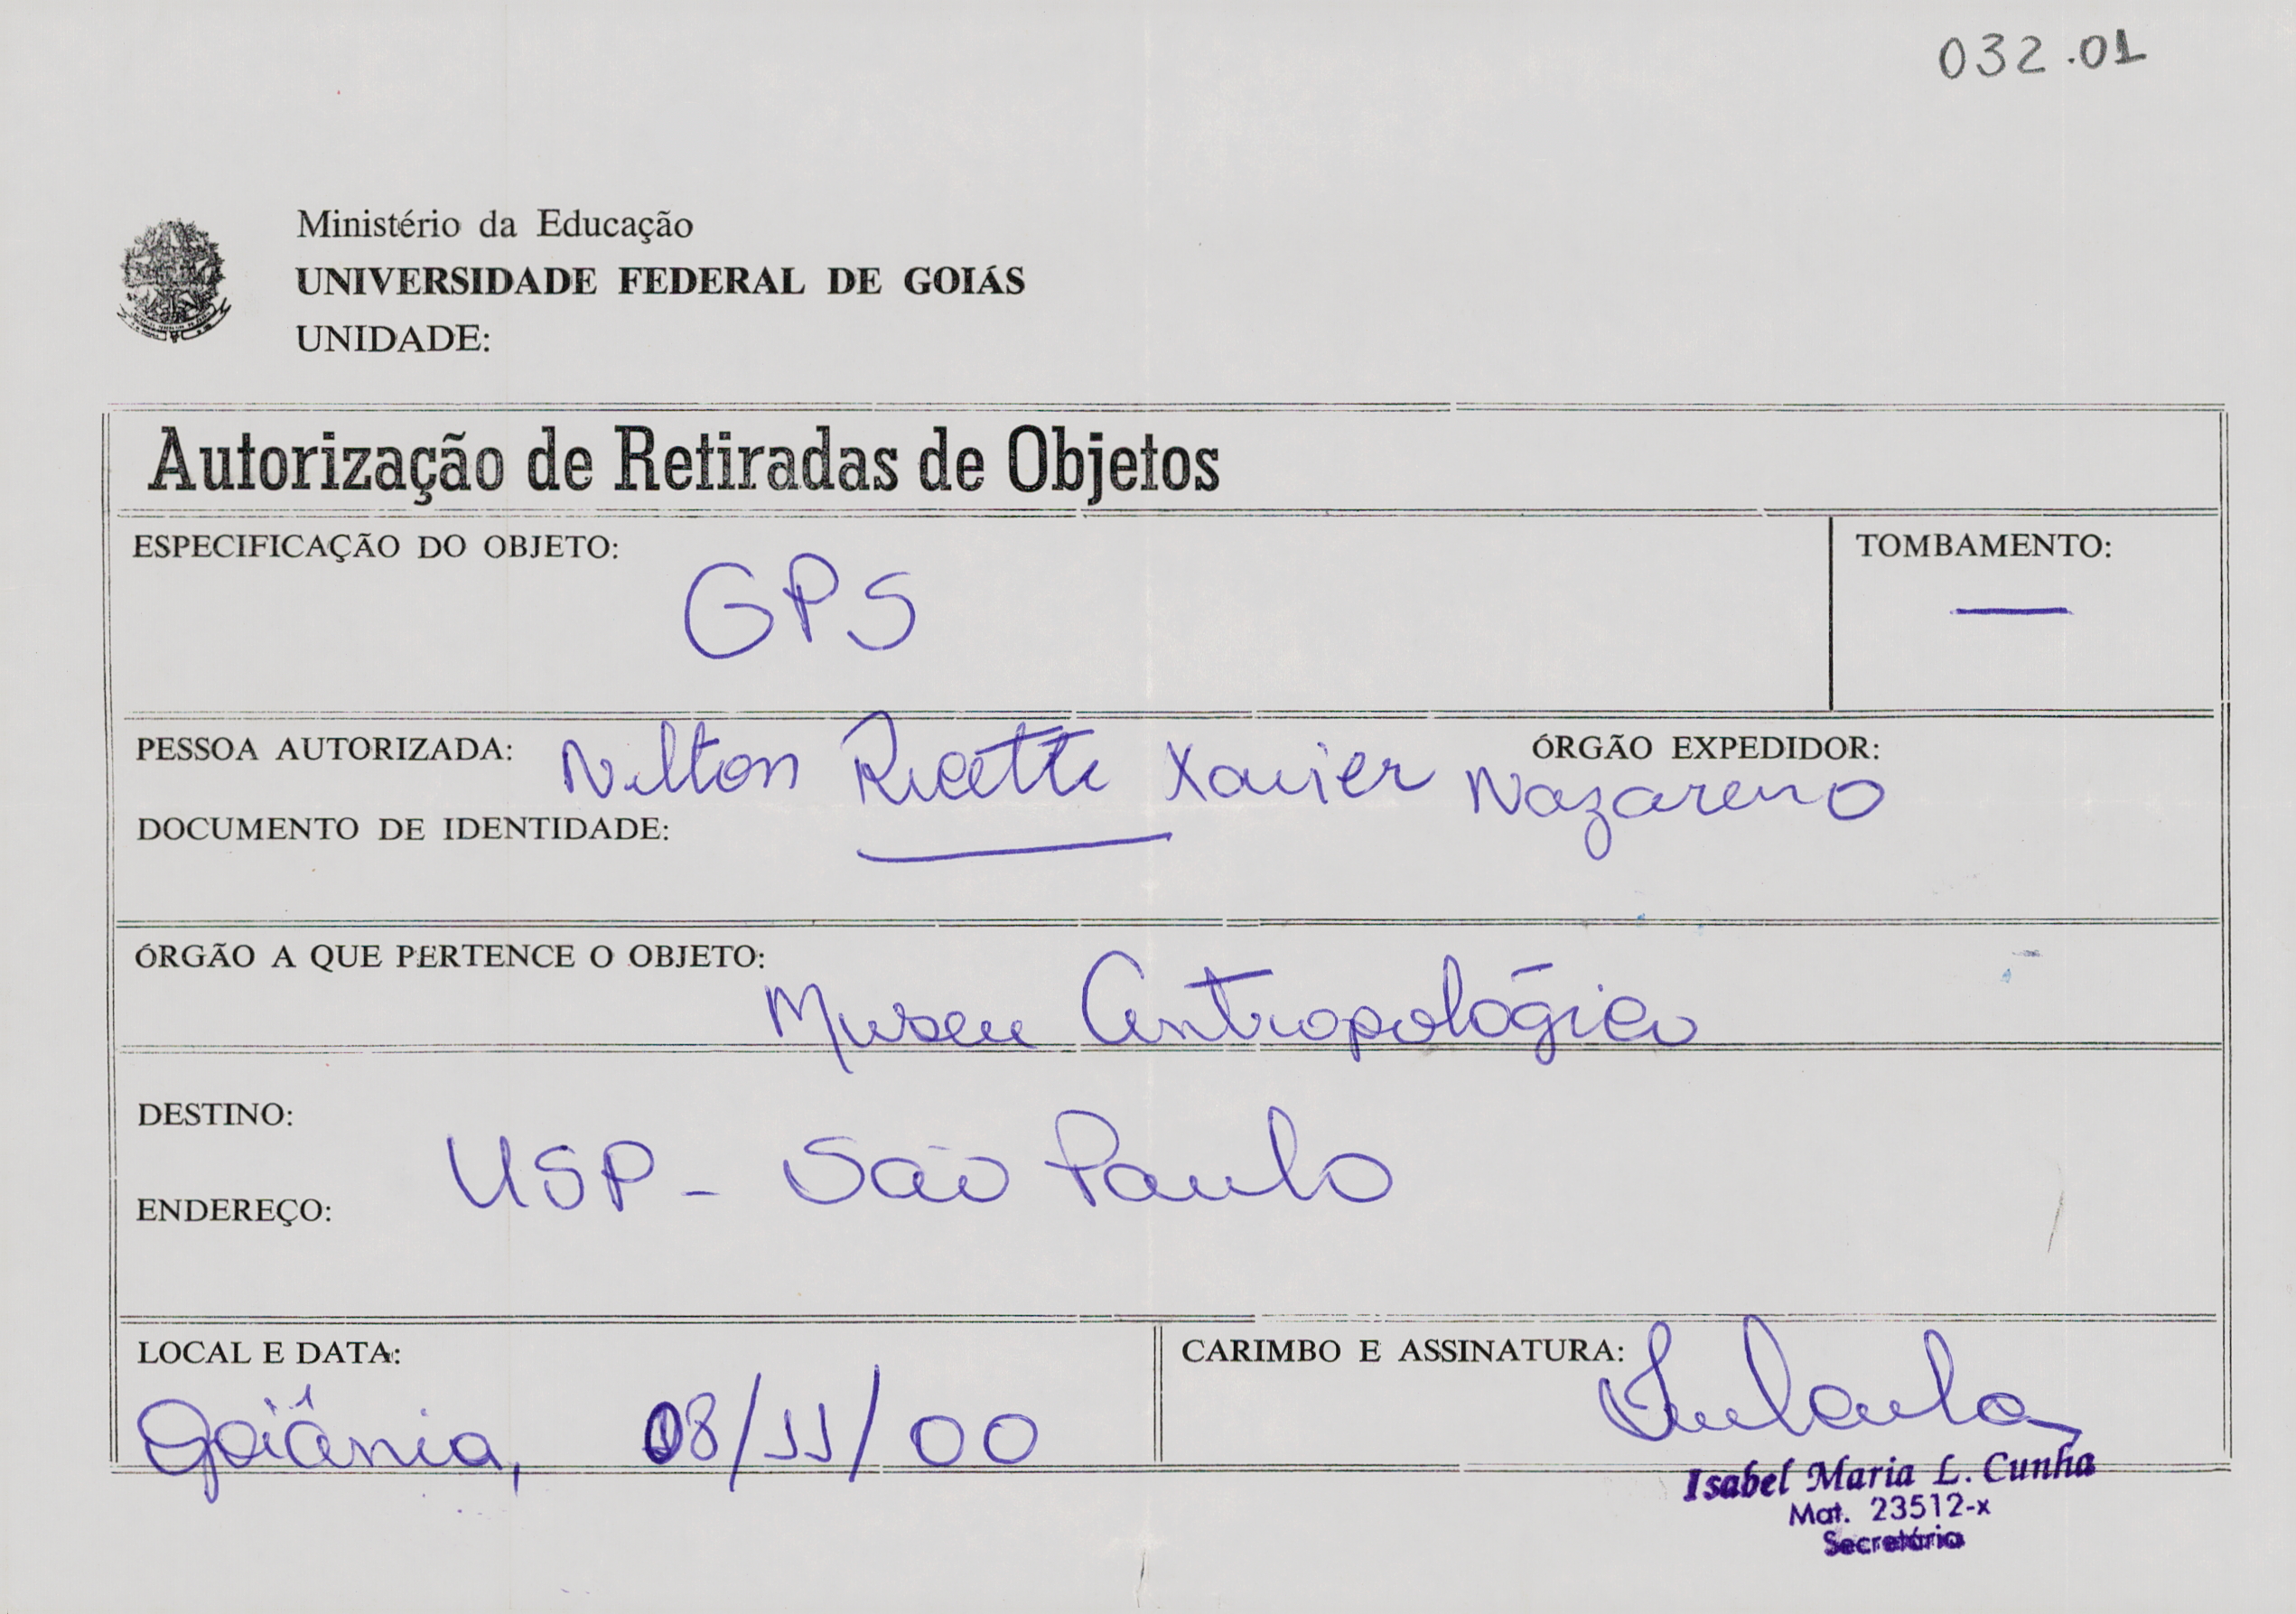 032.01
Ministério da Educação
UNIVERSIDADE FEDERAL DE GOIÁS
UNIDADE:
Autorização de Retiradas de Objetos
ESPECIFICAÇÃO DO OBJETO: GPS
TOMBAMENTO: —
PESSOA AUTORIZADA: Nilton Ricetti Xavier Nazareno
ÓRGÃO EXPEDIDOR:
DOCUMENTO DE IDENTIDADE:
ÓRGÃO A QUE PERTENCE O OBJETO: Museu Antropológico
DESTINO: USP - São Paulo
ENDEREÇO:
LOCAL E DATA:
Goiânia, 08/11/00
CARIMBO E ASSINATURA:
Isabel Maria L. Cunha
Mat. 23512-x
Secretária